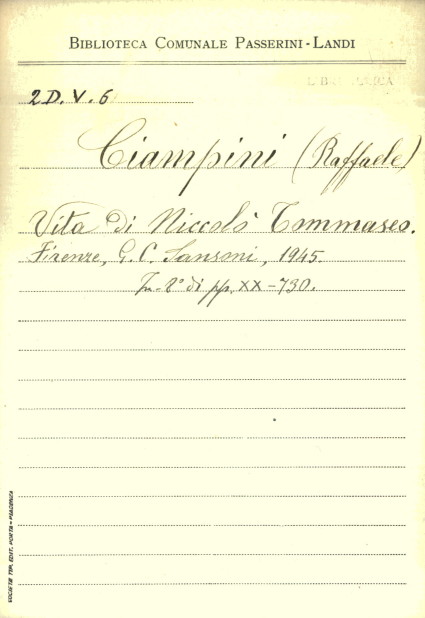 BIBLIOTECA COMUNALE PASSERINI-LANDI
2D.V.6
Ciampini (Raffaele)
Vita di Niccolò Tommaseo.
Firenze, G. C. Sansoni, 1945.
In-8° di pp. XX-730.
SOCIETÀ TIP. EDIT. PORTA - PIACENZA